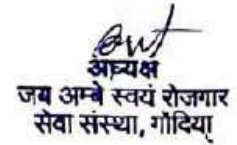 अध्यक्ष
जय अम्बे स्वयं रोजगार
सेवा संस्था, गोंदिया